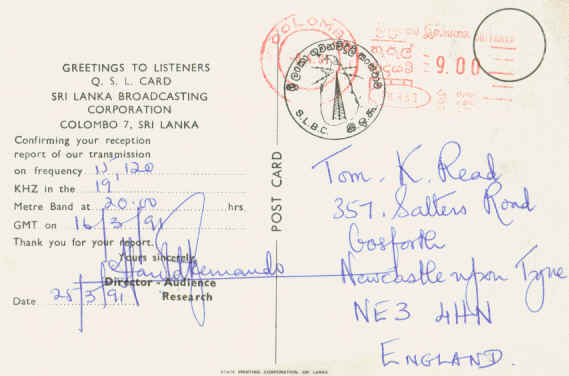 GREETINGS TO LISTENERS
Q. S. L. CARD
SRI LANKA BROADCASTING
CORPORATION
COLOMBO 7, SRI LANKA
Confirming your reception
report of our transmission
on frequency 11,120
KHZ in the 19,
Metre Band at 20.00 hrs
GMT on 16/3/91
Thank you for your report.
Yours sincerely,
Director - Audience
Research
Date 25/3/91
POST CARD
COLOMBO
S.L.B.C.
9.00
Tom. K. Read
357, Salters Road
Gosforth
Newcastle upon Tyne
NE3 4HN
ENGLAND.
STATE PRINTING CORPORATION OF SRI LANKA